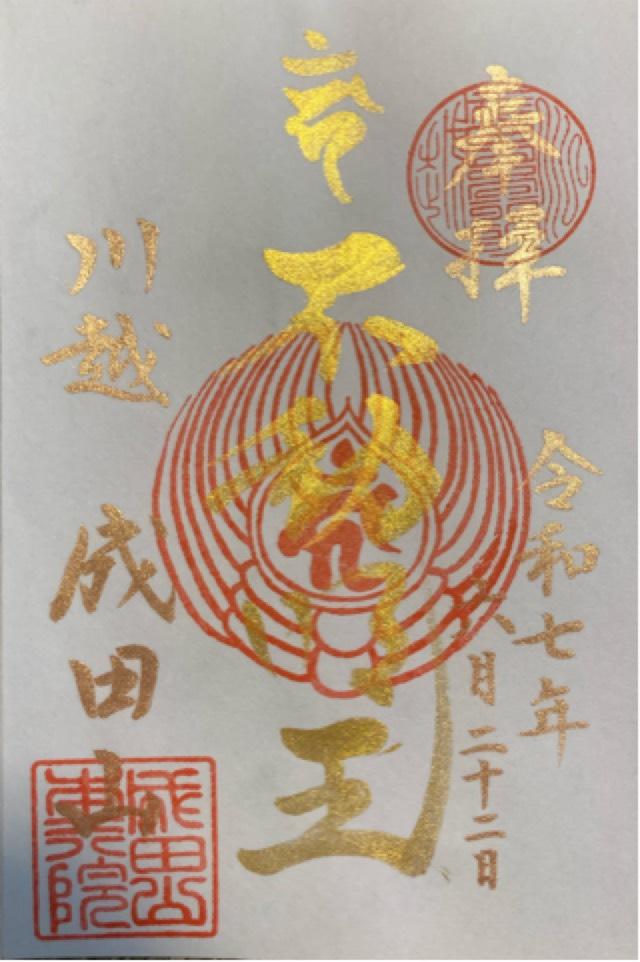 奉拝
令和七年
六月二十二日
不動明王
川越 成田山
成田山
本行院